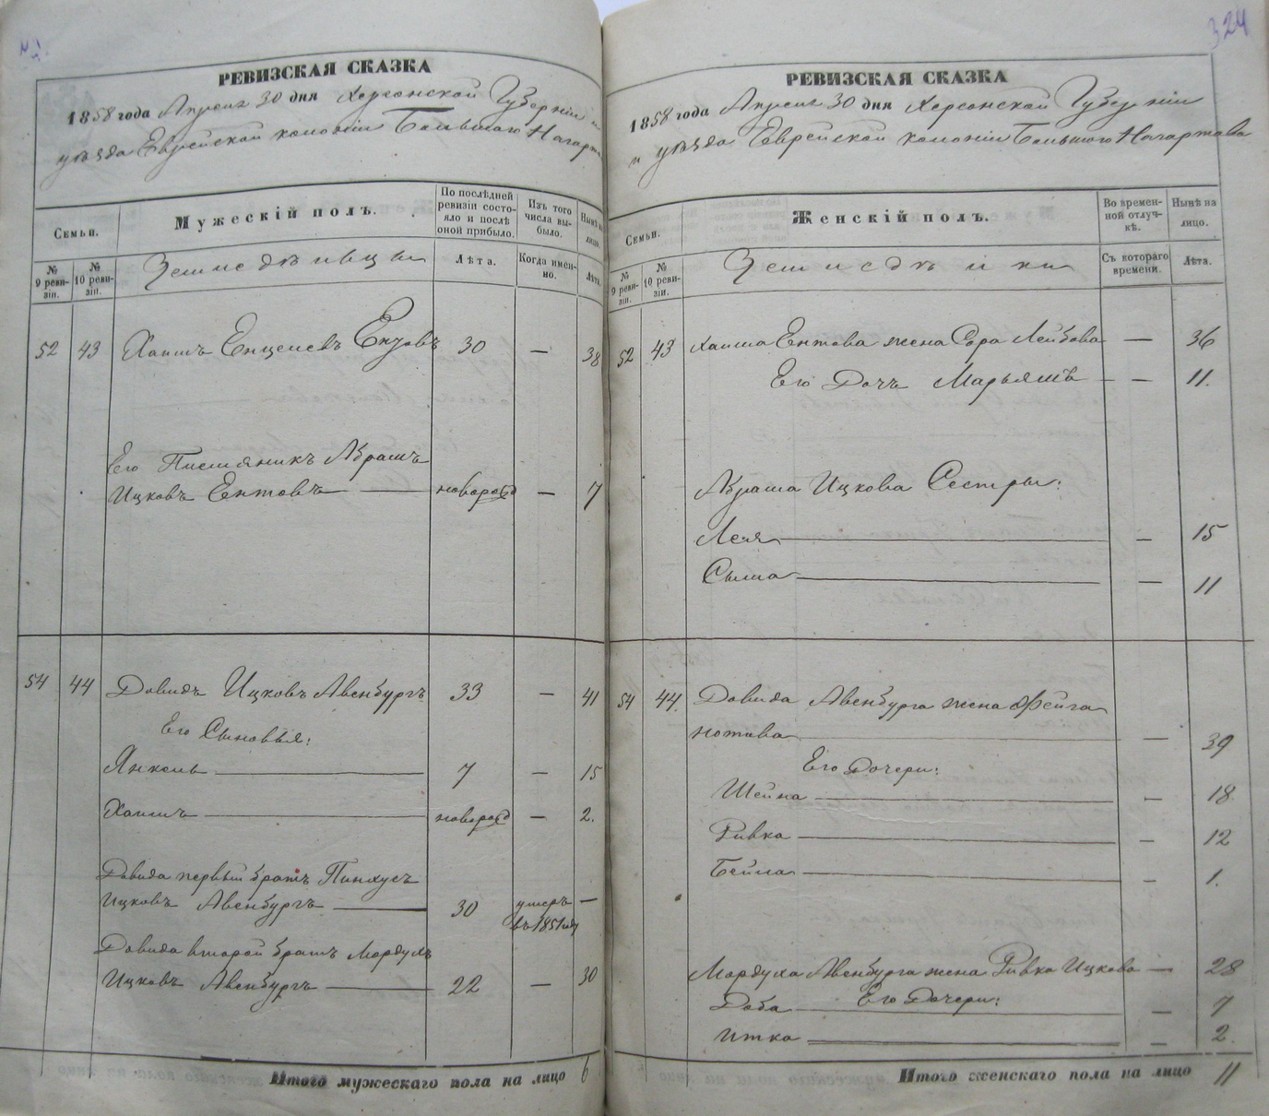 324
РЕВИЗСКАЯ СКАЗКА
1858 года Апреля 30 дня Херсонской Губерніи и
уѣзда Еврейской колоніи Большаго Нагарт
Семьи.
Мужескій полъ.
По послѣдней ревизіи состояло и послѣ оной прибыло.
Изъ того числа выбыло.
Нынѣ на лицо.
№ 9 ревизіи.
№ 10 ревизіи.
Земледѣльцы
Лѣта.
Когда именно.
Лѣта.
52 43 Хаимъ Ентовъ 30 — 38
Его Племяникъ Абрамъ
Ицковъ Ентовъ новорожд — 7
54 44 Давидъ Ицковъ Авенбургъ 33 — 41
Его Сыновья:
Янкель 7 — 15
Хаимъ новорожд — 2.
Давида первый братъ Пинхусъ
Ицковъ Авенбургъ 30 умеръ въ 1851 году —
Давида второй братъ Мордухъ
Ицковъ Авенбургъ 22 — 30
Итого мужескаго пола на лицо 6
РЕВИЗСКАЯ СКАЗКА
1858 года Апреля 30 дня Херсонской Губерніи
и уѣзда Еврейской колоніи Большаго Нагартава
Семьи.
Женскій полъ.
Во временной отлучкѣ.
Нынѣ на лицо.
№ 9 ревизіи.
№ 10 ревизіи.
Земледѣлки
Съ котораго времени.
Лѣта.
52 43 Хаима Ентова жена Сора Лейбова — 36
Его Дочь Марьямъ — 11.
Абрама Ицкова Сестры:
Лея — 15
Сыма — 11
54 44. Давида Авенбурга жена Фейга
— 39
Его Дочери:
Шейна — 18
Ривка — 12
Бейла — 1.
Мордуха Авенбурга жена Ривка Ицкова — 28
Его Дочери:
Доба — 7
Итка — 2.
Итого женскаго пола на лицо 11